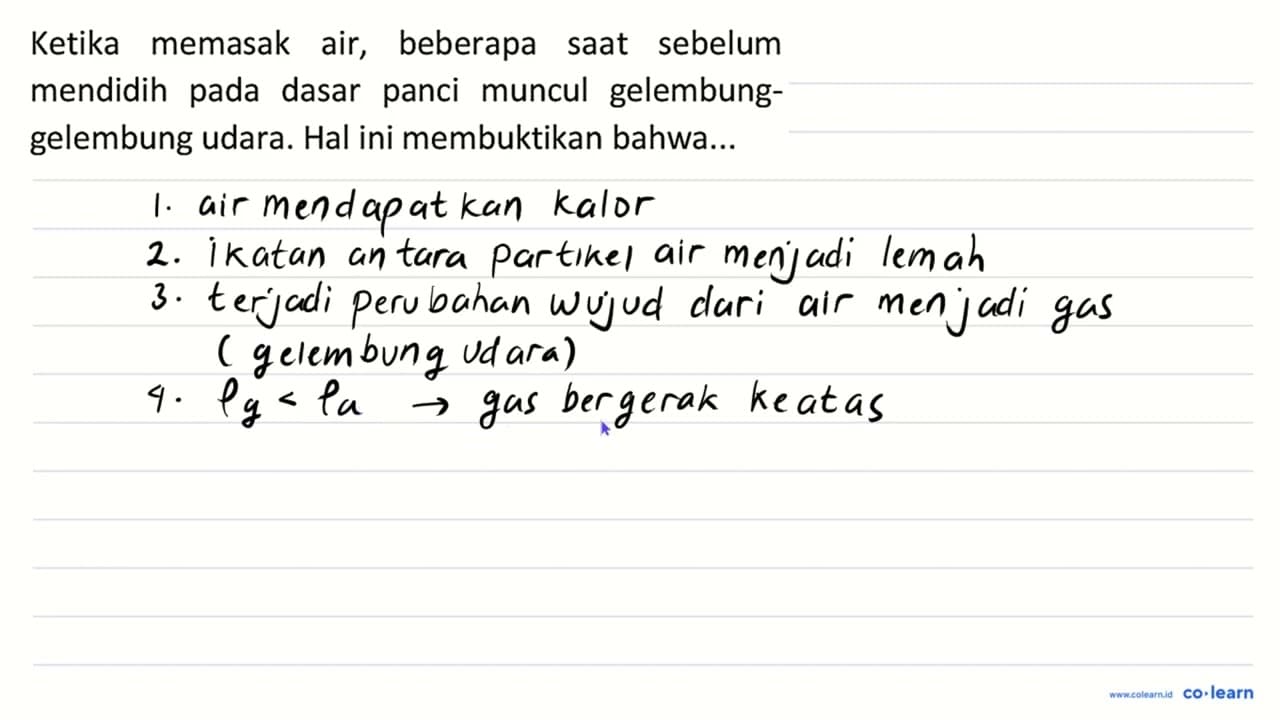 Ketika memasak air, beberapa saat sebelum
mendidih pada dasar panci muncul gelembung-
gelembung udara. Hal ini membuktikan bahwa...
1. air mendapatkan kalor
2. ikatan antara partikel air menjadi lemah
3. terjadi perubahan wujud dari air menjadi gas
(gelembung udara)
4. ρg < ρa → gas bergerak keatas
www.colearn.id co·learn